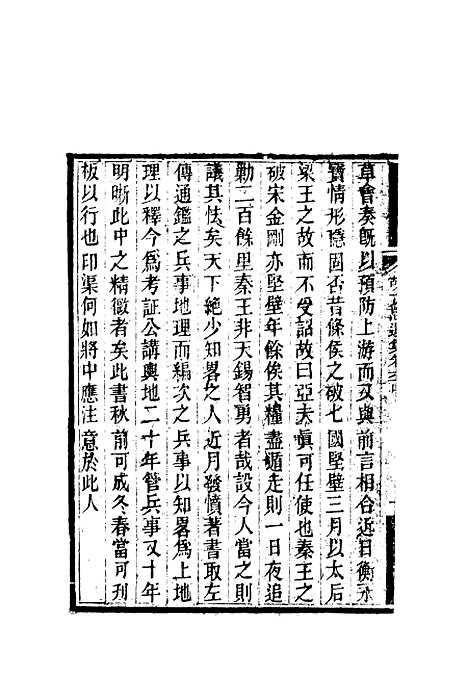 草會奏既以預防上游而又與前言相合近日衡永
寶情形隱固否昔條侯之破七國堅壁三月以太后
梁王之故而不受詔故曰亞夫眞可任使也秦王之
破宋金剛亦堅壁年餘俟其糧盡遁走則一日夜追
勦二百餘里秦王非天錫智勇者哉設今人當之則
議其怯矣天下絶少知畧之人近月發憤著書取左
傳通鑑之兵事地理而編次之兵事以知畧爲上地
理以釋今爲考証公講輿地二十年管兵事又十年
明晰此中之精徵者矣此書秋前可成冬春當可刋
板以行也印渠何如將中應注意於此人